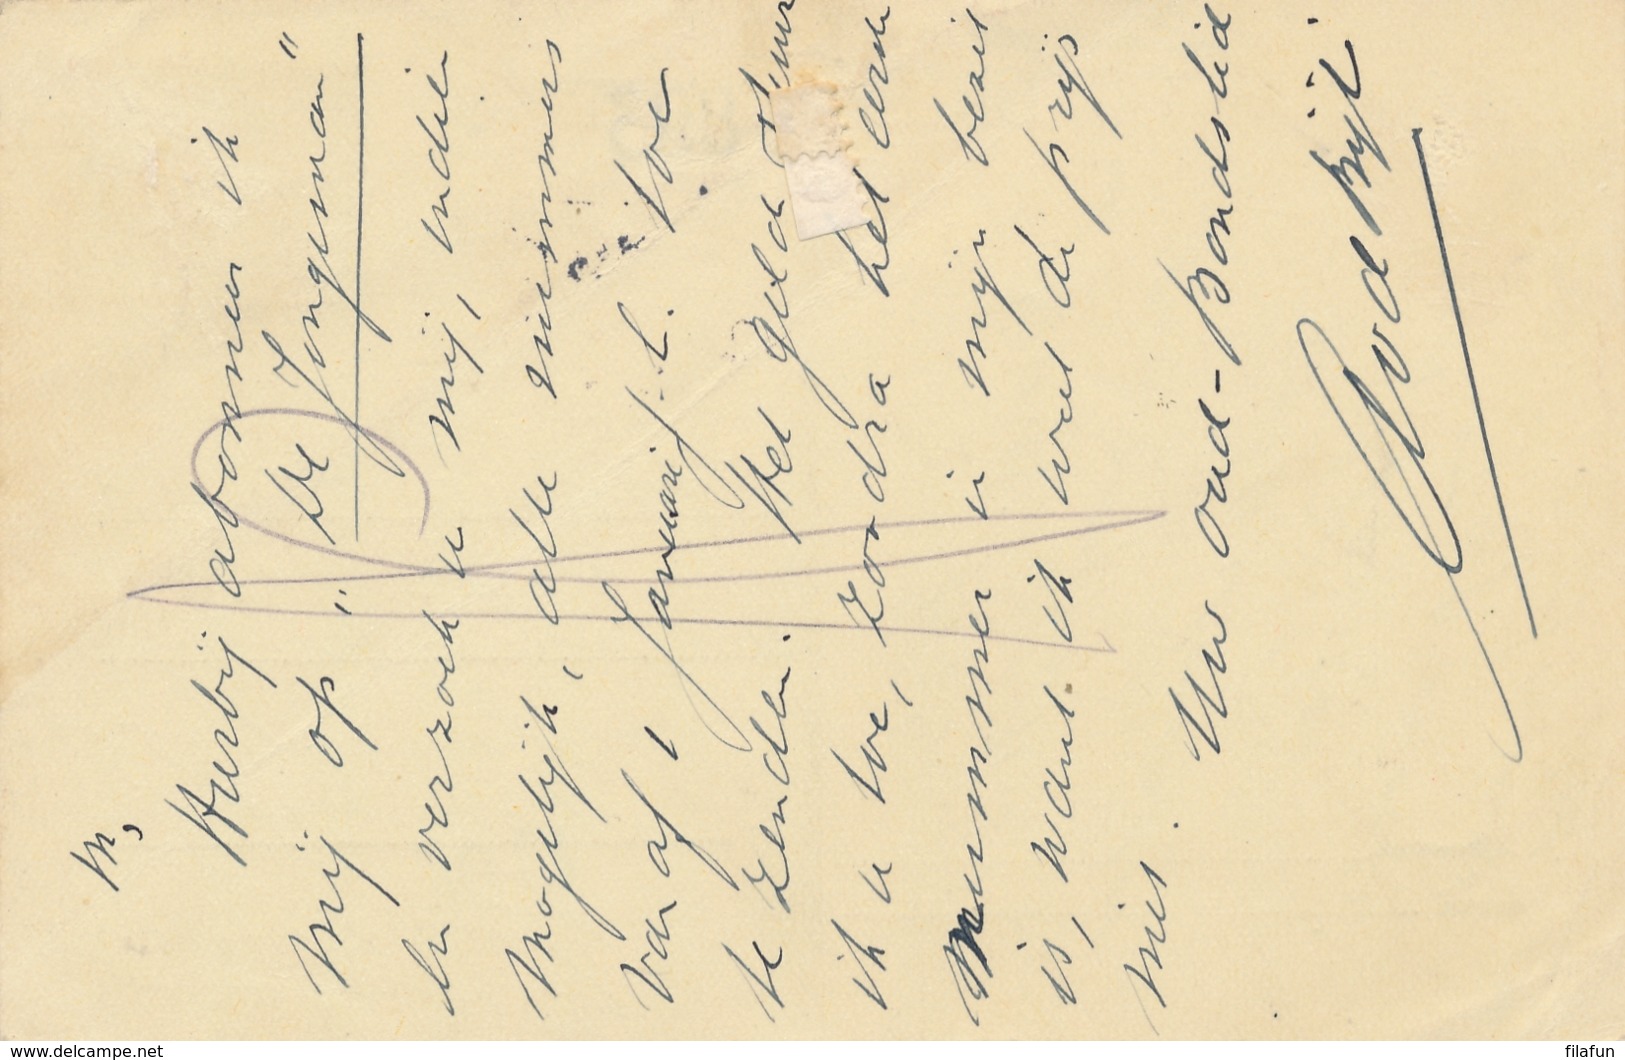 M,
Hierbij abonneer ik
mij op "De Jongeman"
en verzoek u mij, indien
mogelijk, alle nummers
van af 1 Januari j.l. toe
te zenden. Het geld stuur
ik u toe, zoodra het eerste
nummer in mijn bezit
is, want ik weet de prijs
niet.
Uw oud-Bondslid
www.delcampe.net
filafun